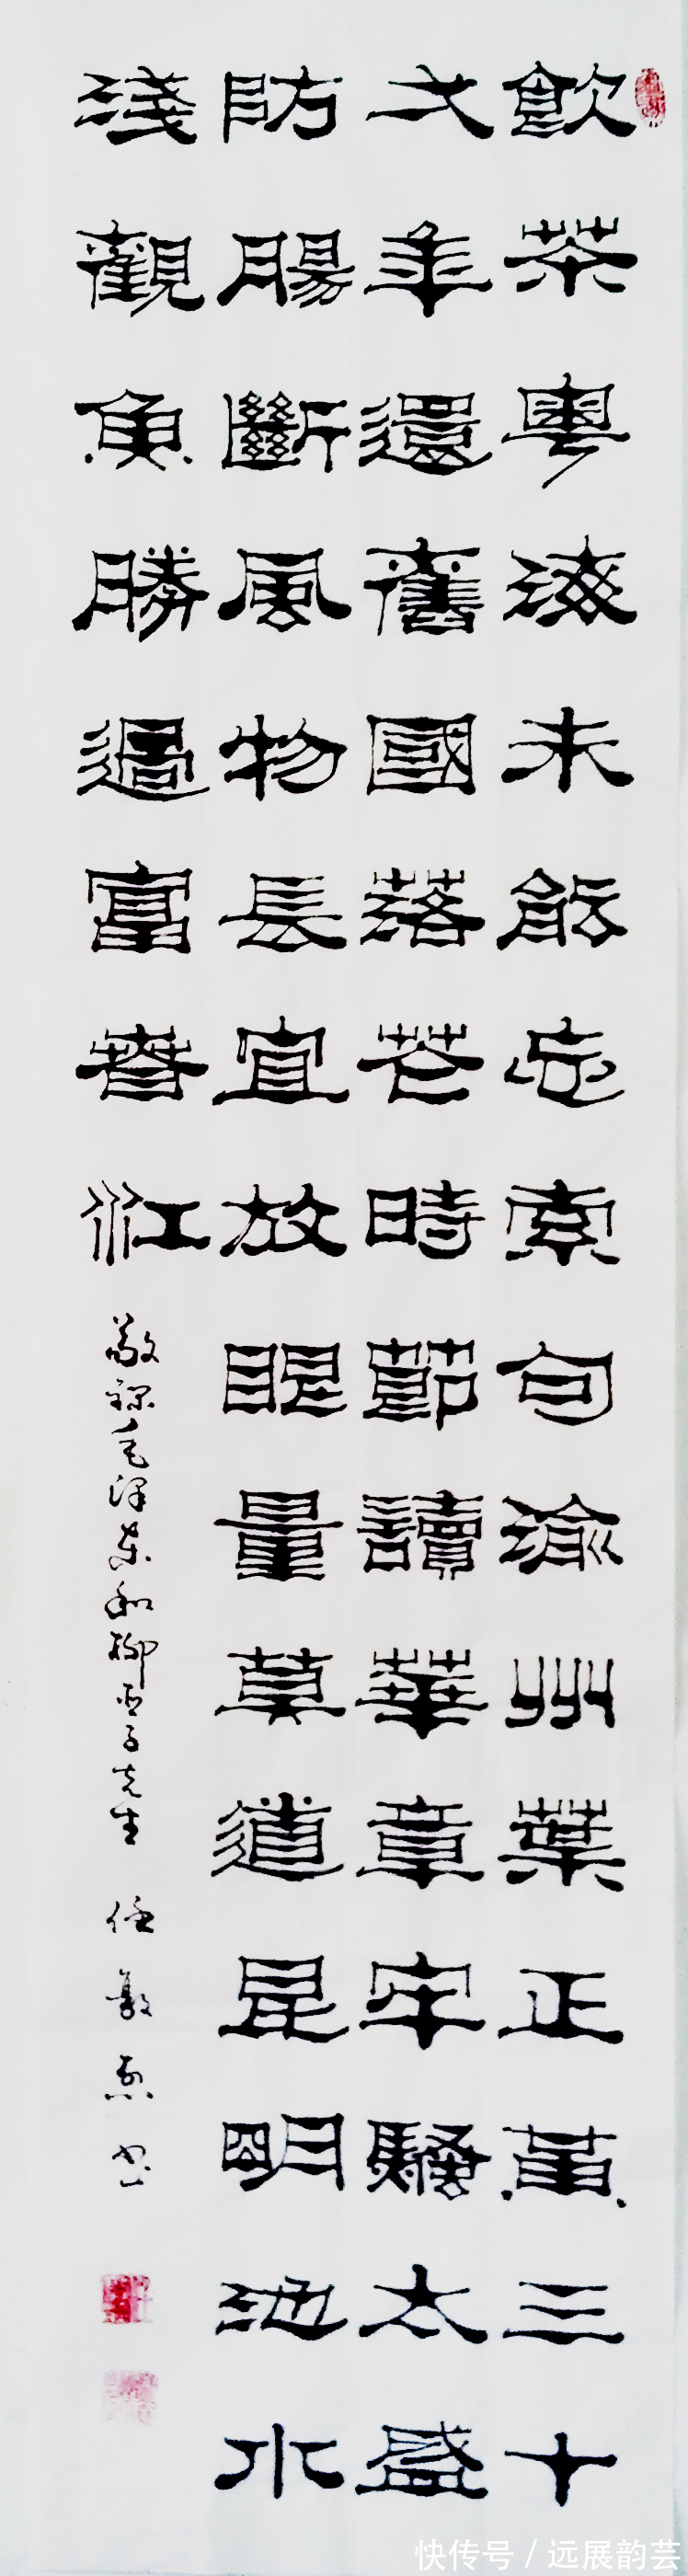 飲茶粵海未能忘索句渝州葉正黃三十
弌年還舊國落花時節讀華章牢騷太盛
防腸斷風物長宜放眼量莫道昆明池水
淺觀魚勝過富春江
敬錄毛泽东和柳亞子先生 任
快传号 / 远展韵芸